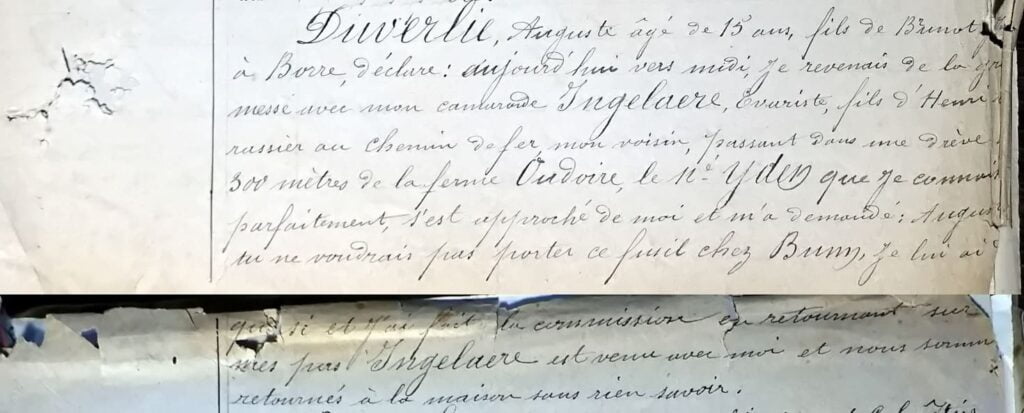 Duverlie, Auguste âgé de 15 ans, fils de Brunot
à Borre, déclare: aujourd'hui vers midi, je revenais de la
messe avec mon camarade Ingelaere, Evariste, fils d'Henri
rassier au chemin de fer, mon voisin, passant dans une drève
300 mètres de la ferme Oudoire, le né Yden que je connais
parfaitement, s'est approché de moi et m'a demandé: Augus
tu ne voudrais pas porter ce fusil chez Buny, Je lui ai
que si et j'ai fait la commission en retournant sur
mes pas Ingelaere est venu avec moi et nous somm
retournés à la maison sans rien savoir.